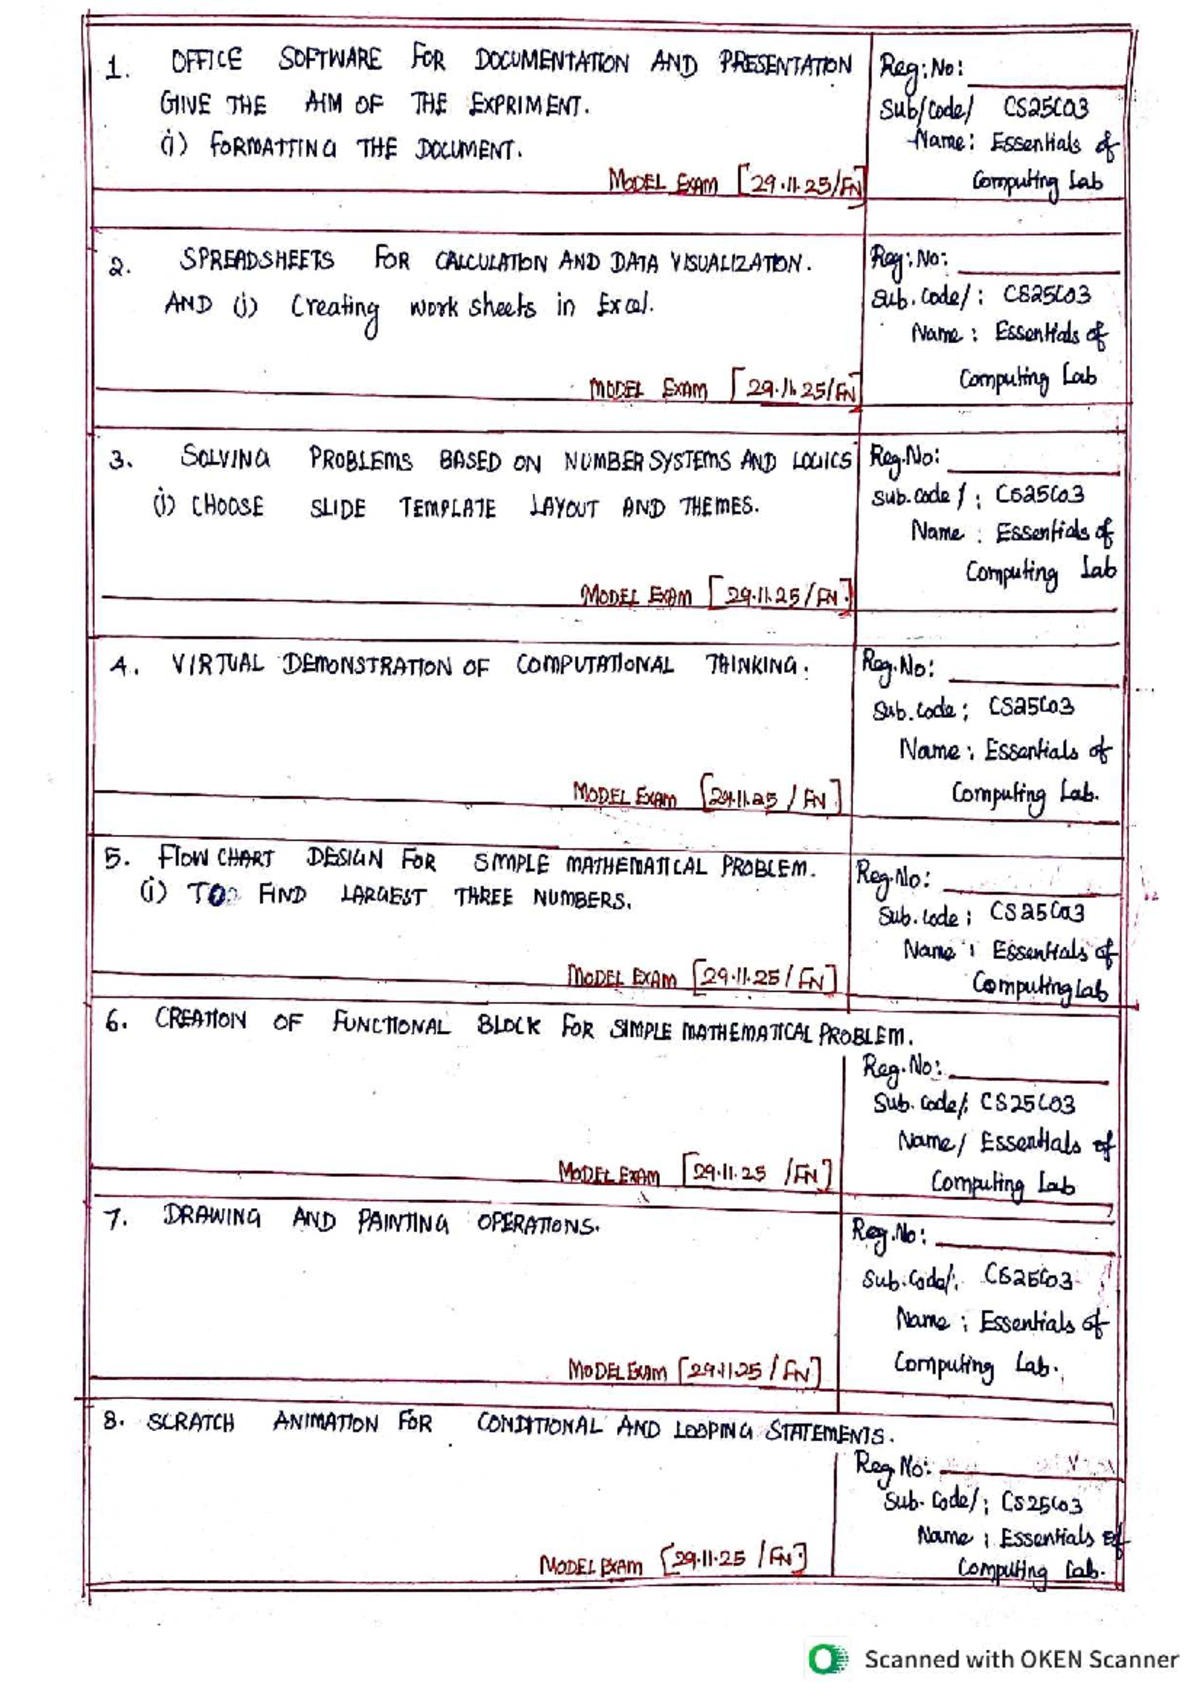 1. OFFICE SOFTWARE FOR DOCUMENTATION AND PRESENTATION
GIIVE THE AIM OF THE EXPRIMENT.
(i) FORMATTING THE DOCUMENT.
MODEL EXAM [29.11.25/FN]
Reg:No:
Sub/Code/ CS25C03
Name: Essentials of
Computing Lab
2. SPREADSHEETS FOR CALCULATION AND DATA VISUALIZATION.
AND (i) Creating work sheets in Excel.
MODEL EXAM [29.11.25/FN]
Reg:No:
Sub.Code/: CS25C03
Name: Essentials of
Computing Lab
3. SOLVING PROBLEMS BASED ON NUMBER SYSTEMS AND LOGICS
(i) CHOOSE SLIDE TEMPLATE LAYOUT AND THEMES.
MODEL EXAM [29.11.25/FN.]
Reg.No:
Sub.code/: CS25C03
Name: Essentials of
Computing Lab
4. VIRTUAL DEMONSTRATION OF COMPUTATIONAL THINKING.
MODEL EXAM [29.11.25/FN]
Reg.No:
Sub.code: CS25C03
Name: Essentials of
Computing Lab.
5. FLOW CHART DESIGN FOR SIMPLE MATHEMATICAL PROBLEM.
(i) TO FIND LARGEST THREE NUMBERS.
MODEL EXAM [29.11.25/FN]
Reg.No:
Sub.code: CS25C03
Name: Essentials of
Computing Lab
6. CREATION OF FUNCTIONAL BLOCK FOR SIMPLE MATHEMATICAL PROBLEM.
MODEL EXAM [29.11.25/FN]
Reg.No:
Sub.code/: CS25C03
Name/ Essentials of
Computing Lab
7. DRAWING AND PAINTING OPERATIONS.
MODEL EXAM [29.11.25/FN]
Reg.No:
Sub.Code/: CS25C03
Name: Essentials of
Computing Lab.
8. SCRATCH ANIMATION FOR CONDITIONAL AND LOOPING STATEMENTS.
MODEL EXAM [29.11.25/FN.]
Reg.No:
Sub.Code/: CS25C03
Name: Essentials of
Computing Lab.
Scanned with OKEN Scanner